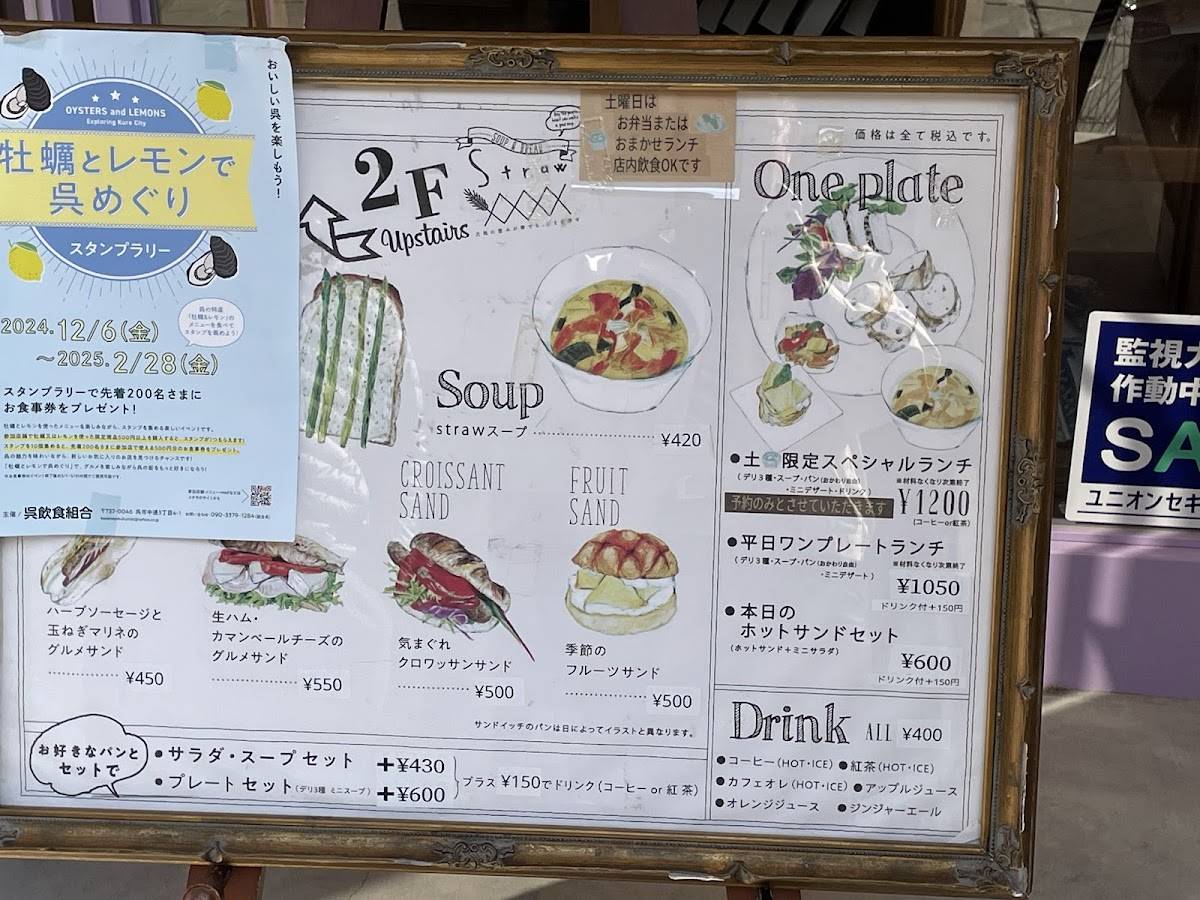 おいしい呉を楽しもう!
OYSTERS and LEMONS
Exploring Kure City
牡蠣とレモンで
呉めぐり
スタンプラリー
呉の特産
「牡蠣&レモン」の
メニューを食べて
スタンプを集めよう!
2024.12/6(金)
～2025.2/28(金)
スタンプラリーで先着200名さまに
お食事券をプレゼント!
牡蠣とレモンを使ったメニューを楽しみながら、スタンプを集める楽しいイベントです。
主催/ 呉飲食組合
〒737-0046 呉市中通3丁目
090-3379-1284
2F
Upstairs
SOUP & BREAD
Straw
土曜日は
お弁当または
おまかせランチ
店内飲食OKです
価格は全て税込です。
Soup
strawスープ ¥420
CROISSANT
SAND
FRUIT
SAND
ハーブソーセージと
玉ねぎマリネの
グルメサンド
¥450
生ハム・
カマンベールチーズの
グルメサンド
¥550
気まぐれ
クロワッサンサンド
¥500
季節の
フルーツサンド
¥500
サンドイッチのパンは日によってイラストと異なります。
お好きなパンと
セットで
●サラダ・スープセット +¥430
●プレートセット(デリ3種 ミニスープ) +¥600
プラス ¥150でドリンク(コーヒー or 紅茶)
One plate
●土 限定スペシャルランチ
(デリ3種・スープ・パン(おかわり自由)
・ミニデザート・ドリンク)
※材料なくなり次第終了
予約のみとさせていただきます
¥1200
(コーヒーor紅茶)
●平日ワンプレートランチ
(デリ3種・スープ・パン(おかわり自由)
・ミニデザート)
※材料なくなり次第終了
¥1050
ドリンク付+150円
●本日の
ホットサンドセット
(ホットサンド+ミニサラダ)
¥600
ドリンク付+150円
Drink ALL ¥400
●コーヒー(HOT・ICE) ●紅茶(HOT・ICE)
●カフェオレ(HOT・ICE) ●アップルジュース
●オレンジジュース ●ジンジャーエール
監視カ
作動中
SA
ユニオンセキ